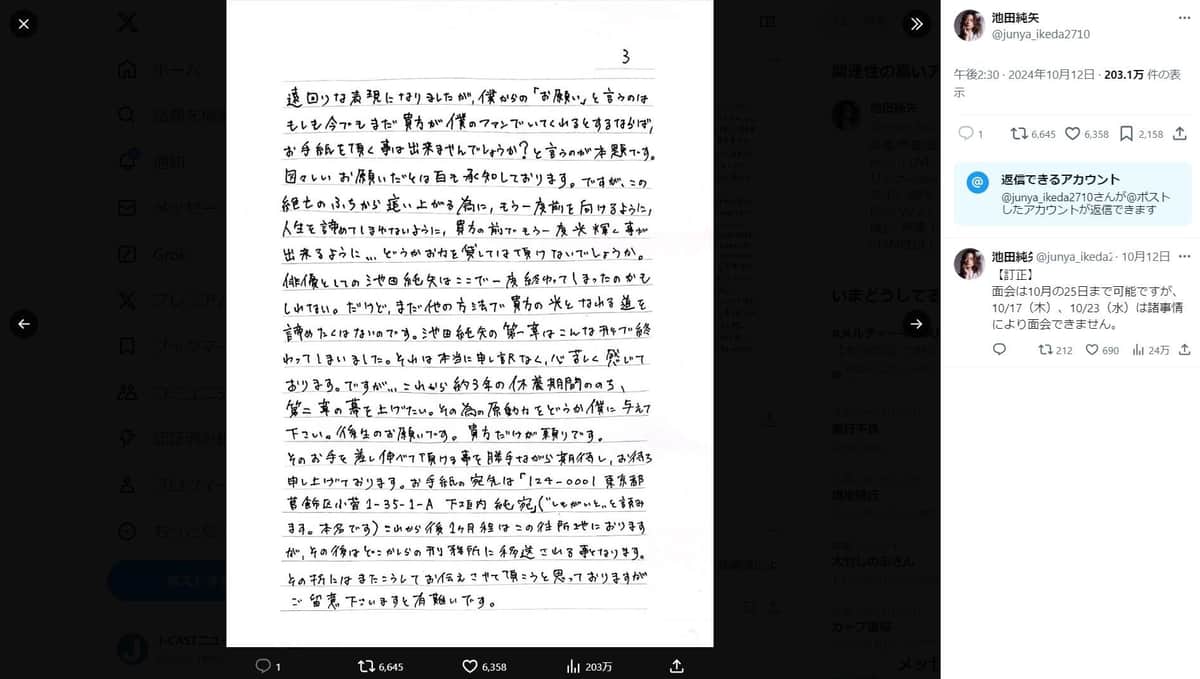 3
遠回りな表現になりましたが、僕からの「お願い」と言うのは
もしも今でもまだ貴方が僕のファンでいてくれるとするならば、
お手紙を頂く事は出来ませんでしょうか?と言うのが本題です。
図々しいお願いだとは百も承知しております。ですが、この
絶土のふちから這い上がる為に、もう一度前を向けるように、
人生を諦めてしまわないように、貴方の前でもう一度光輝く事が
出来るように… どうかお力を貸しては頂けないでしょうか。
俳優としての池田純矢はここで一度終わってしまったのかも
しれない。だけど、まだ他の方法で貴方の光となれる道を
諦めたくはないのです。池田純矢の第一章はこんな形で終
わってしまいました。それは本当に申し訳なく、心苦しく感じて
おります。ですが… これから約3年の休養期間ののち、
第二章の幕を上げたい。その為の原動力をどうか僕に与えて
下さい。後生のお願いです。貴方だけが頼りです。
そのお手を差し伸べて頂ける事を勝手ながら期待し、お待ち
申し上げております。お手紙の宛先は「124-0001 東京都
葛飾区小菅1-35-1-A 下垣内 純宛」("しもがいと"と読み
ます。本名です)これから後1ヶ月程はこの住所地におります
が、その後はどこかしらの刑務所に移送される事となります。
その折にはまたこうしてお伝えさせて頂こうと思っておりますが
ご留意下さいますと有難いです。
1
6,645
6,358
203万
池田純矢
@junya_ikeda2710
午後2:30 · 2024年10月12日 · 203.1万 件の表
示
1
6,645
6,358
2,158
返信できるアカウント
@junya_ikeda2710さんが@ポスト
したアカウントが返信できます
@junya_ikeda2 · 10月12日
【訂正】
面会は10月の25日まで可能ですが、
10/17(木)、10/23(水)は諸事情
により面会できません。
212
690
24万